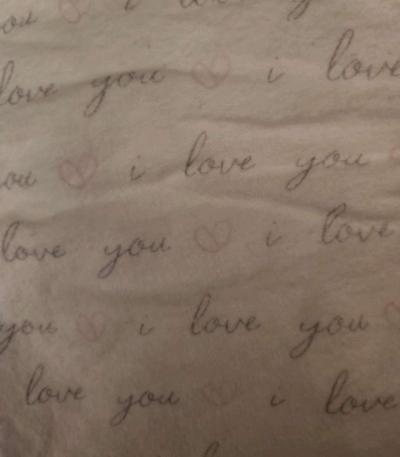 you i love
love you i love
you i love you
love you i love
you i love you
love you i love